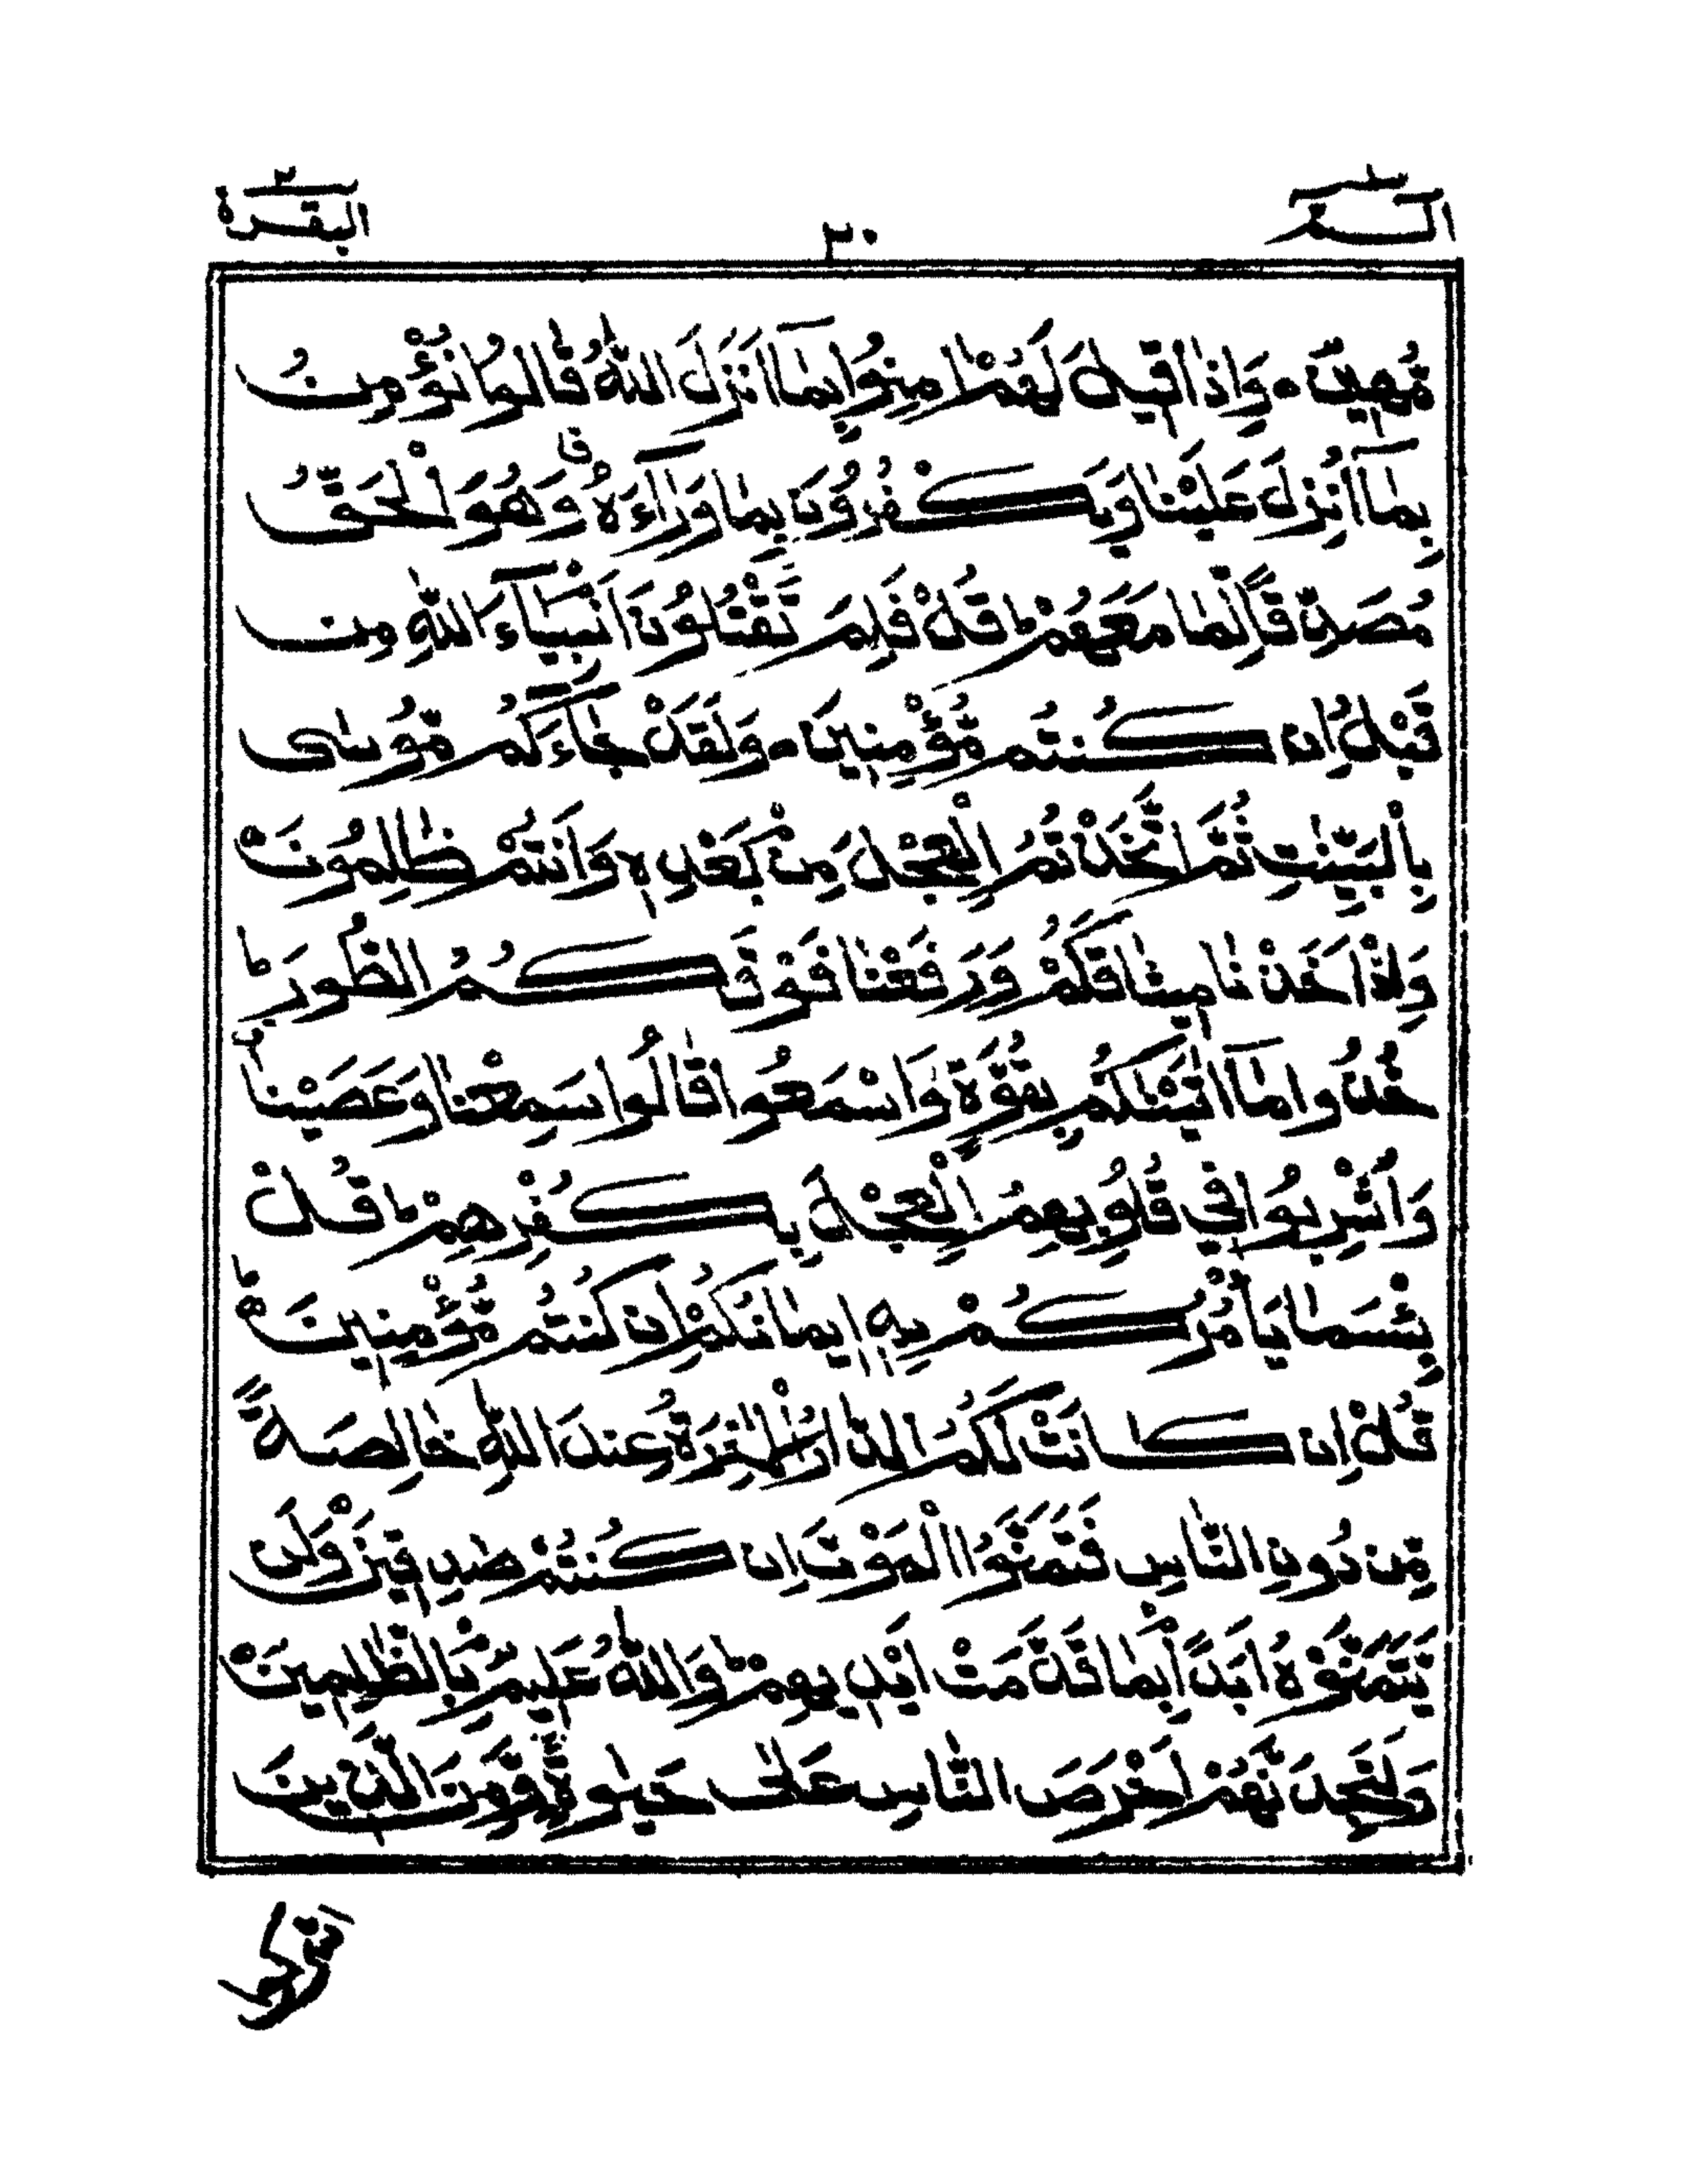 الٓمّٓ ١
٢٠
البقرة ٢
مُّهِیْنٌ ۰ وَاِذَا قِیْلَ لَهُمْ اٰمِنُوْا بِمَاۤ اَنْزَلَ اللّٰهُ قَالُوْا نُؤْمِنُ
بِمَاۤ اُنْزِلَ عَلَیْنَا وَیَكْفُرُوْنَ بِمَا وَرَآءَهٗ ۗ وَهُوَ الْحَقُّ
مُصَدِّقًا لِّمَا مَعَهُمْ ؕ قُلْ فَلِمَ تَقْتُلُوْنَ اَنْۢبِیَآءَ اللّٰهِ مِنْ
قَبْلُ اِنْ كُنْتُمْ مُّؤْمِنِیْنَ ۰ وَلَقَدْ جَآءَكُمْ مُّوْسٰی
بِالْبَیِّنٰتِ ثُمَّ اتَّخَذْتُمُ الْعِجْلَ مِنْۢ بَعْدِهٖ وَاَنْتُمْ ظٰلِمُوْنَ ۰
وَاِذْ اَخَذْنَا مِیْثَاقَكُمْ وَرَفَعْنَا فَوْقَكُمُ الطُّوْرَ ؕ
خُذُوْا مَاۤ اٰتَیْنٰكُمْ بِقُوَّةٍ وَّاسْمَعُوْا قَالُوْا سَمِعْنَا وَعَصَیْنَا ۗ
وَاُشْرِبُوْا فِیْ قُلُوْبِهِمُ الْعِجْلَ بِكُفْرِهِمْ ؕ قُلْ
بِئْسَمَا یَاْمُرُكُمْ بِهٖۤ اِیْمَانُكُمْ اِنْ كُنْتُمْ مُّؤْمِنِیْنَ ۰
قُلْ اِنْ كَانَتْ لَكُمُ الدَّارُ الْاٰخِرَةُ عِنْدَ اللّٰهِ خَالِصَةً
مِّنْ دُوْنِ النَّاسِ فَتَمَنَّوُا الْمَوْتَ اِنْ كُنْتُمْ صٰدِقِیْنَ ۰ وَلَنْ
یَّتَمَنَّوْهُ اَبَدًۢا بِمَا قَدَّمَتْ اَیْدِیْهِمْ ؕ وَاللّٰهُ عَلِیْمٌۢ بِالظّٰلِمِیْنَ ۰
وَلَتَجِدَنَّهُمْ اَحْرَصَ النَّاسِ عَلٰی حَیٰوةٍ ۛۚ وَمِنَ الَّذِیْنَ